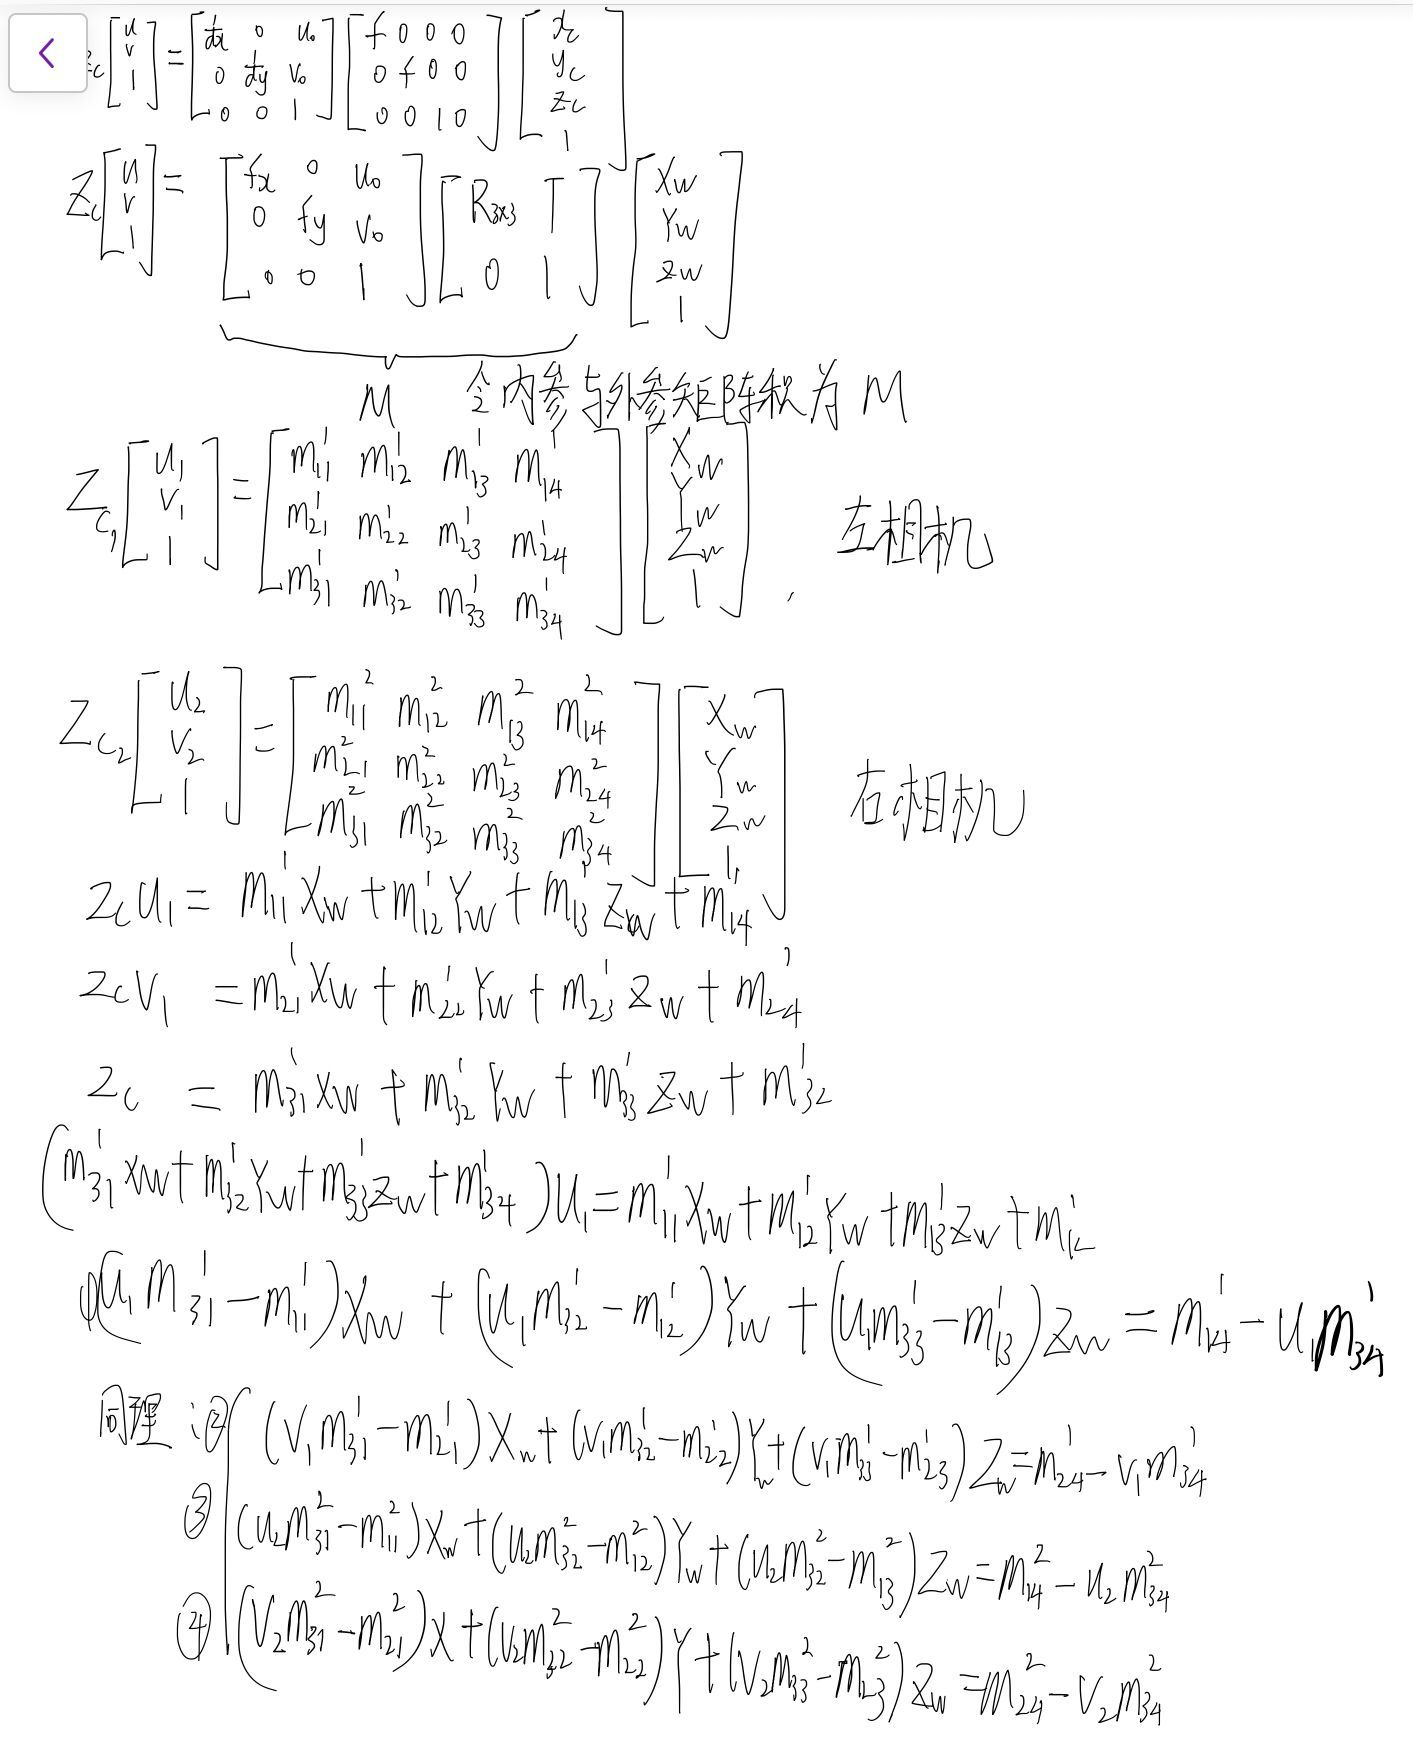 Zc [u v 1] = [1/dx 0 u₀; 0 1/dy v₀; 0 0 1] [f 0 0 0; 0 f 0 0; 0 0 1 0] [xc yc zc 1]
Zc [u v 1] = [fx 0 u₀; 0 fy v₀; 0 0 1] [R₃ₓ₃ T; 0 1] [Xw Yw Zw 1]
M 令内参与外参矩阵积为 M
Zc₁ [u₁ v₁ 1] = [m₁₁¹ m₁₂¹ m₁₃¹ m₁₄¹; m₂₁¹ m₂₂¹ m₂₃¹ m₂₄¹; m₃₁¹ m₃₂¹ m₃₃¹ m₃₄¹] [Xw Yw Zw 1] , 左相机
Zc₂ [u₂ v₂ 1] = [m₁₁² m₁₂² m₁₃² m₁₄²; m₂₁² m₂₂² m₂₃² m₂₄²; m₃₁² m₃₂² m₃₃² m₃₄²] [Xw Yw Zw 1] 右相机
Zc u₁ = m₁₁¹ Xw + m₁₂¹ Yw + m₁₃¹ Zw + m₁₄¹
Zc v₁ = m₂₁¹ Xw + m₂₂¹ Yw + m₂₃¹ Zw + m₂₄¹
Zc = m₃₁¹ Xw + m₃₂¹ Yw + m₃₃¹ Zw + m₃₂¹
(m₃₁¹ Xw + m₃₂¹ Yw + m₃₃¹ Zw + m₃₄¹) u₁ = m₁₁¹ Xw + m₁₂¹ Yw + m₁₃¹ Zw + m₁₂¹
① (u₁m₃₁¹ - m₁₁¹) Xw + (u₁m₃₂¹ - m₁₂¹) Yw + (u₁m₃₃¹ - m₁₃¹) Zw = m₁₄¹ - u₁m₃₄¹
同理: ② (v₁m₃₁¹ - m₂₁¹) Xw + (v₁m₃₂¹ - m₂₂¹) Yw + (v₁m₃₃¹ - m₂₃¹) Zw = m₂₄¹ - v₁m₃₄¹
③ (u₂m₃₁² - m₁₁²) Xw + (u₂m₃₂² - m₁₂²) Yw + (u₂m₃₂² - m₁₃²) Zw = m₁₄² - u₂m₃₄²
④ (v₂m₃₁² - m₂₁²) X + (v₂m₃₂² - m₂₂²) Y + (v₂m₃₃² - m₂₃²) Zw = m₂₄² - v₂m₃₄²